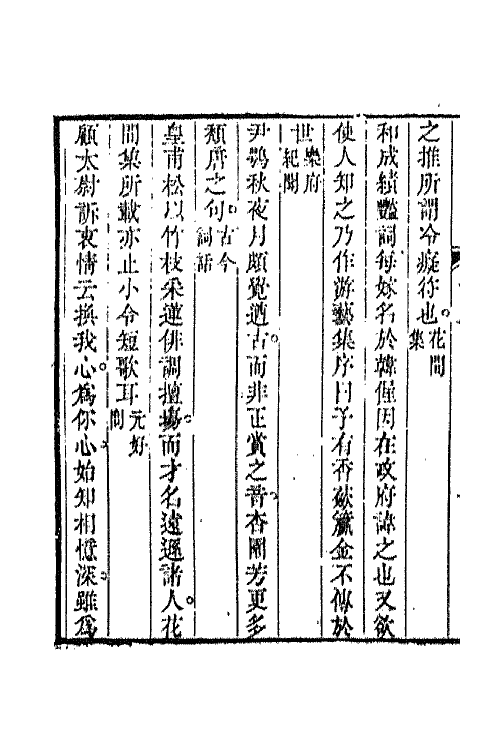 之推所謂令癡符也花間集
和成績艷詞每嫁名於韓偓因在政府諱之也又欲
使人知之乃作游藝集序曰予有香奩籯金不傳於
世樂府紀聞
尹鶚秋夜月頗覺遒古而非正賞之音杏園芳更多
類唐之句古今詞話
皇甫松以竹枝采蓮俳調擅場而才名遠遜諸人花
間集所載亦止小令短歌耳元好問
顧太尉訴衷情云換我心為你心始知相憶深雖為